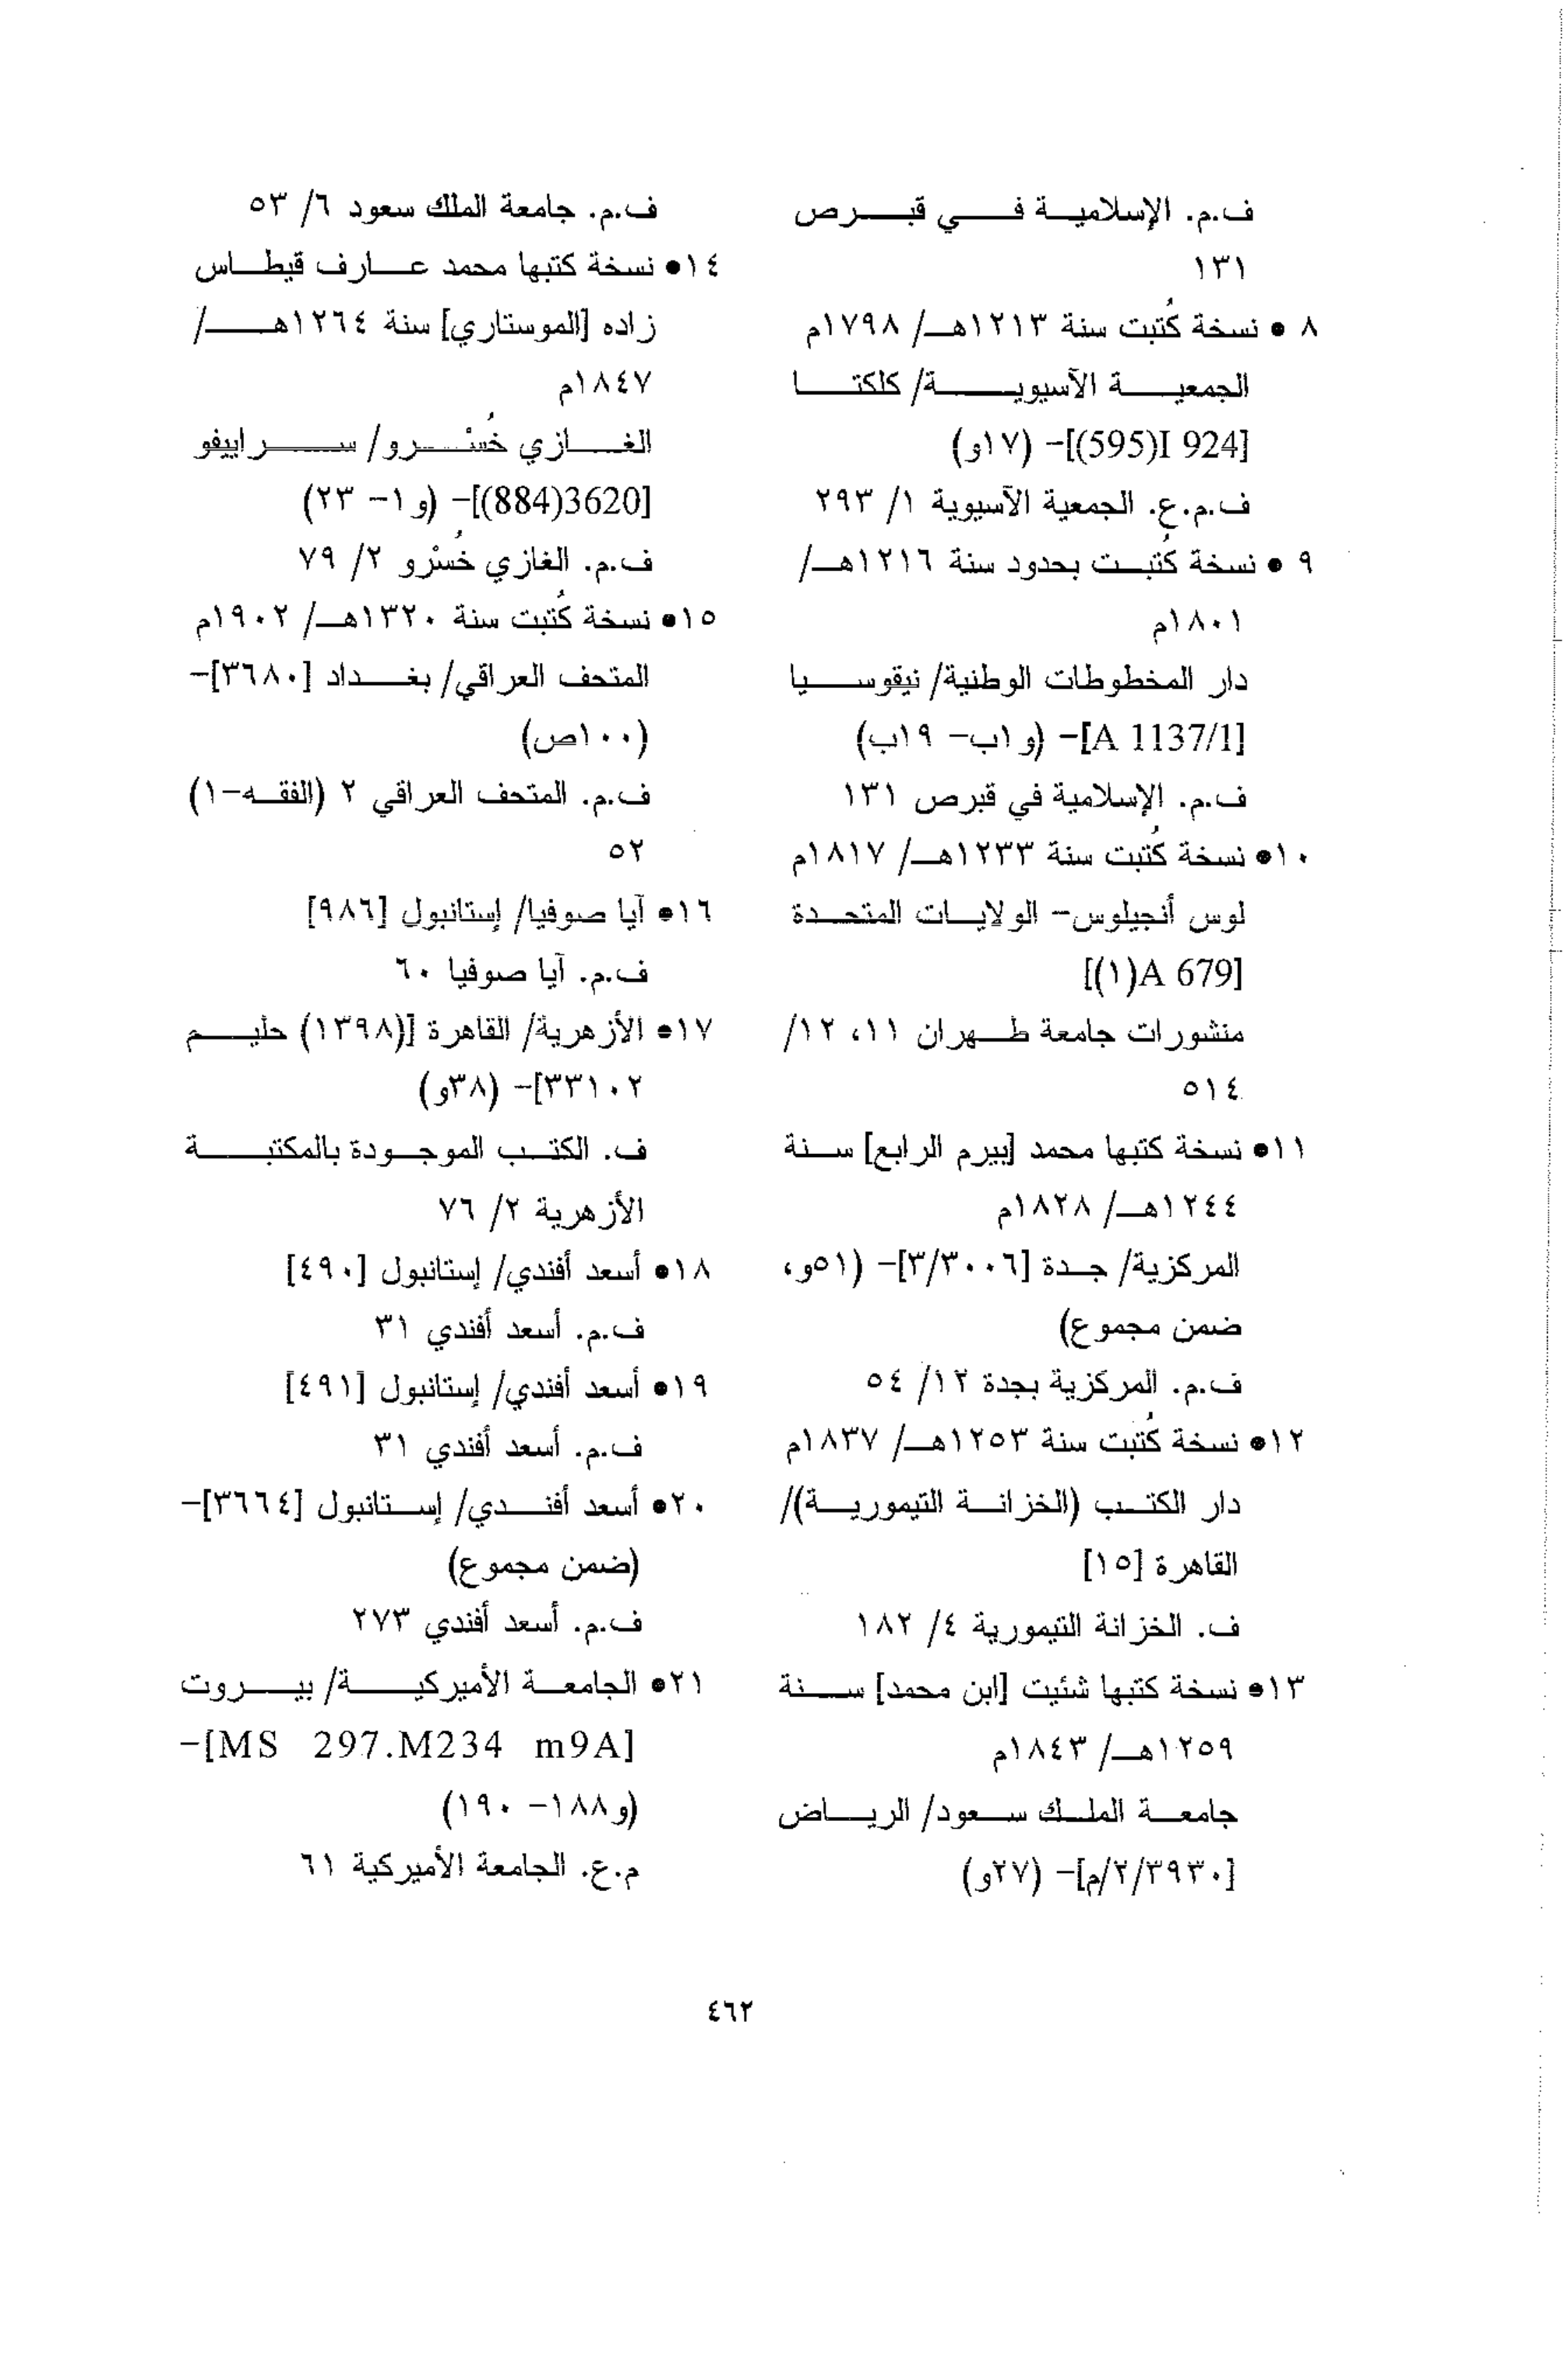 ف.م. الإسلامية في قبرص
١٣١
٨ • نسخة كُتبت سنة ١٢١٣هـ/ ١٧٩٨م
الجمعية الآسيوية/ كلكتا
[I 924(595)]- (١٧و)
ف.م.ع. الجمعية الآسيوية ١/ ٢٩٣
٩ • نسخة كُتبت بحدود سنة ١٢١٦هـ/
١٨٠١م
دار المخطوطات الوطنية/ نيقوسيا
[A 1137/1]- (و١ب- ١٩ب)
ف.م. الإسلامية في قبرص ١٣١
١٠• نسخة كُتبت سنة ١٢٣٣هـ/ ١٨١٧م
لوس أنجيلوس- الولايات المتحدة
[A 679(١)]
منشورات جامعة طهران ١١، ١٢/
٥١٤
١١• نسخة كتبها محمد [بيرم الرابع] سنة
١٢٤٤هـ/ ١٨٢٨م
المركزية/ جدة [٣/٣٠٠٦]- (٥١و،
ضمن مجموع)
ف.م. المركزية بجدة ١٢/ ٥٤
١٢• نسخة كُتبت سنة ١٢٥٣هـ/ ١٨٣٧م
دار الكتب (الخزانة التيمورية)/
القاهرة [١٥]
ف. الخزانة التيمورية ٤/ ١٨٢
١٣• نسخة كتبها شئيت [ابن محمد] سنة
١٢٥٩هـ/ ١٨٤٣م
جامعة الملك سعود/ الرياض
[٢/٣٩٣٠/م]- (٢٧و)
ف.م. جامعة الملك سعود ٦/ ٥٣
١٤• نسخة كتبها محمد عارف قيطاس
زاده [الموستاري] سنة ١٢٦٤هـ/
١٨٤٧م
الغازي خُسْرو/ سراييفو
[3620(884)]- (و١- ٢٣)
ف.م. الغازي خُسْرو ٢/ ٧٩
١٥• نسخة كُتبت سنة ١٣٢٠هـ/ ١٩٠٢م
المتحف العراقي/ بغداد [٣٦٨٠]-
(١٠٠ص)
ف.م. المتحف العراقي ٢ (الفقه-١)
٥٢
١٦• آيا صوفيا/ إستانبول [٩٨٦]
ف.م. آيا صوفيا ٦٠
١٧• الأزهرية/ القاهرة [(١٣٩٨) حليم
٣٣١٠٢]- (٣٨و)
ف. الكتب الموجودة بالمكتبة
الأزهرية ٢/ ٧٦
١٨• أسعد أفندي/ إستانبول [٤٩٠]
ف.م. أسعد أفندي ٣١
١٩• أسعد أفندي/ إستانبول [٤٩١]
ف.م. أسعد أفندي ٣١
٢٠• أسعد أفندي/ إستانبول [٣٦٦٤]-
(ضمن مجموع)
ف.م. أسعد أفندي ٢٧٣
٢١• الجامعة الأميركية/ بيروت
[MS 297.M234 m9A]-
(و١٨٨- ١٩٠)
م.ع. الجامعة الأميركية ٦١
٤٦٢